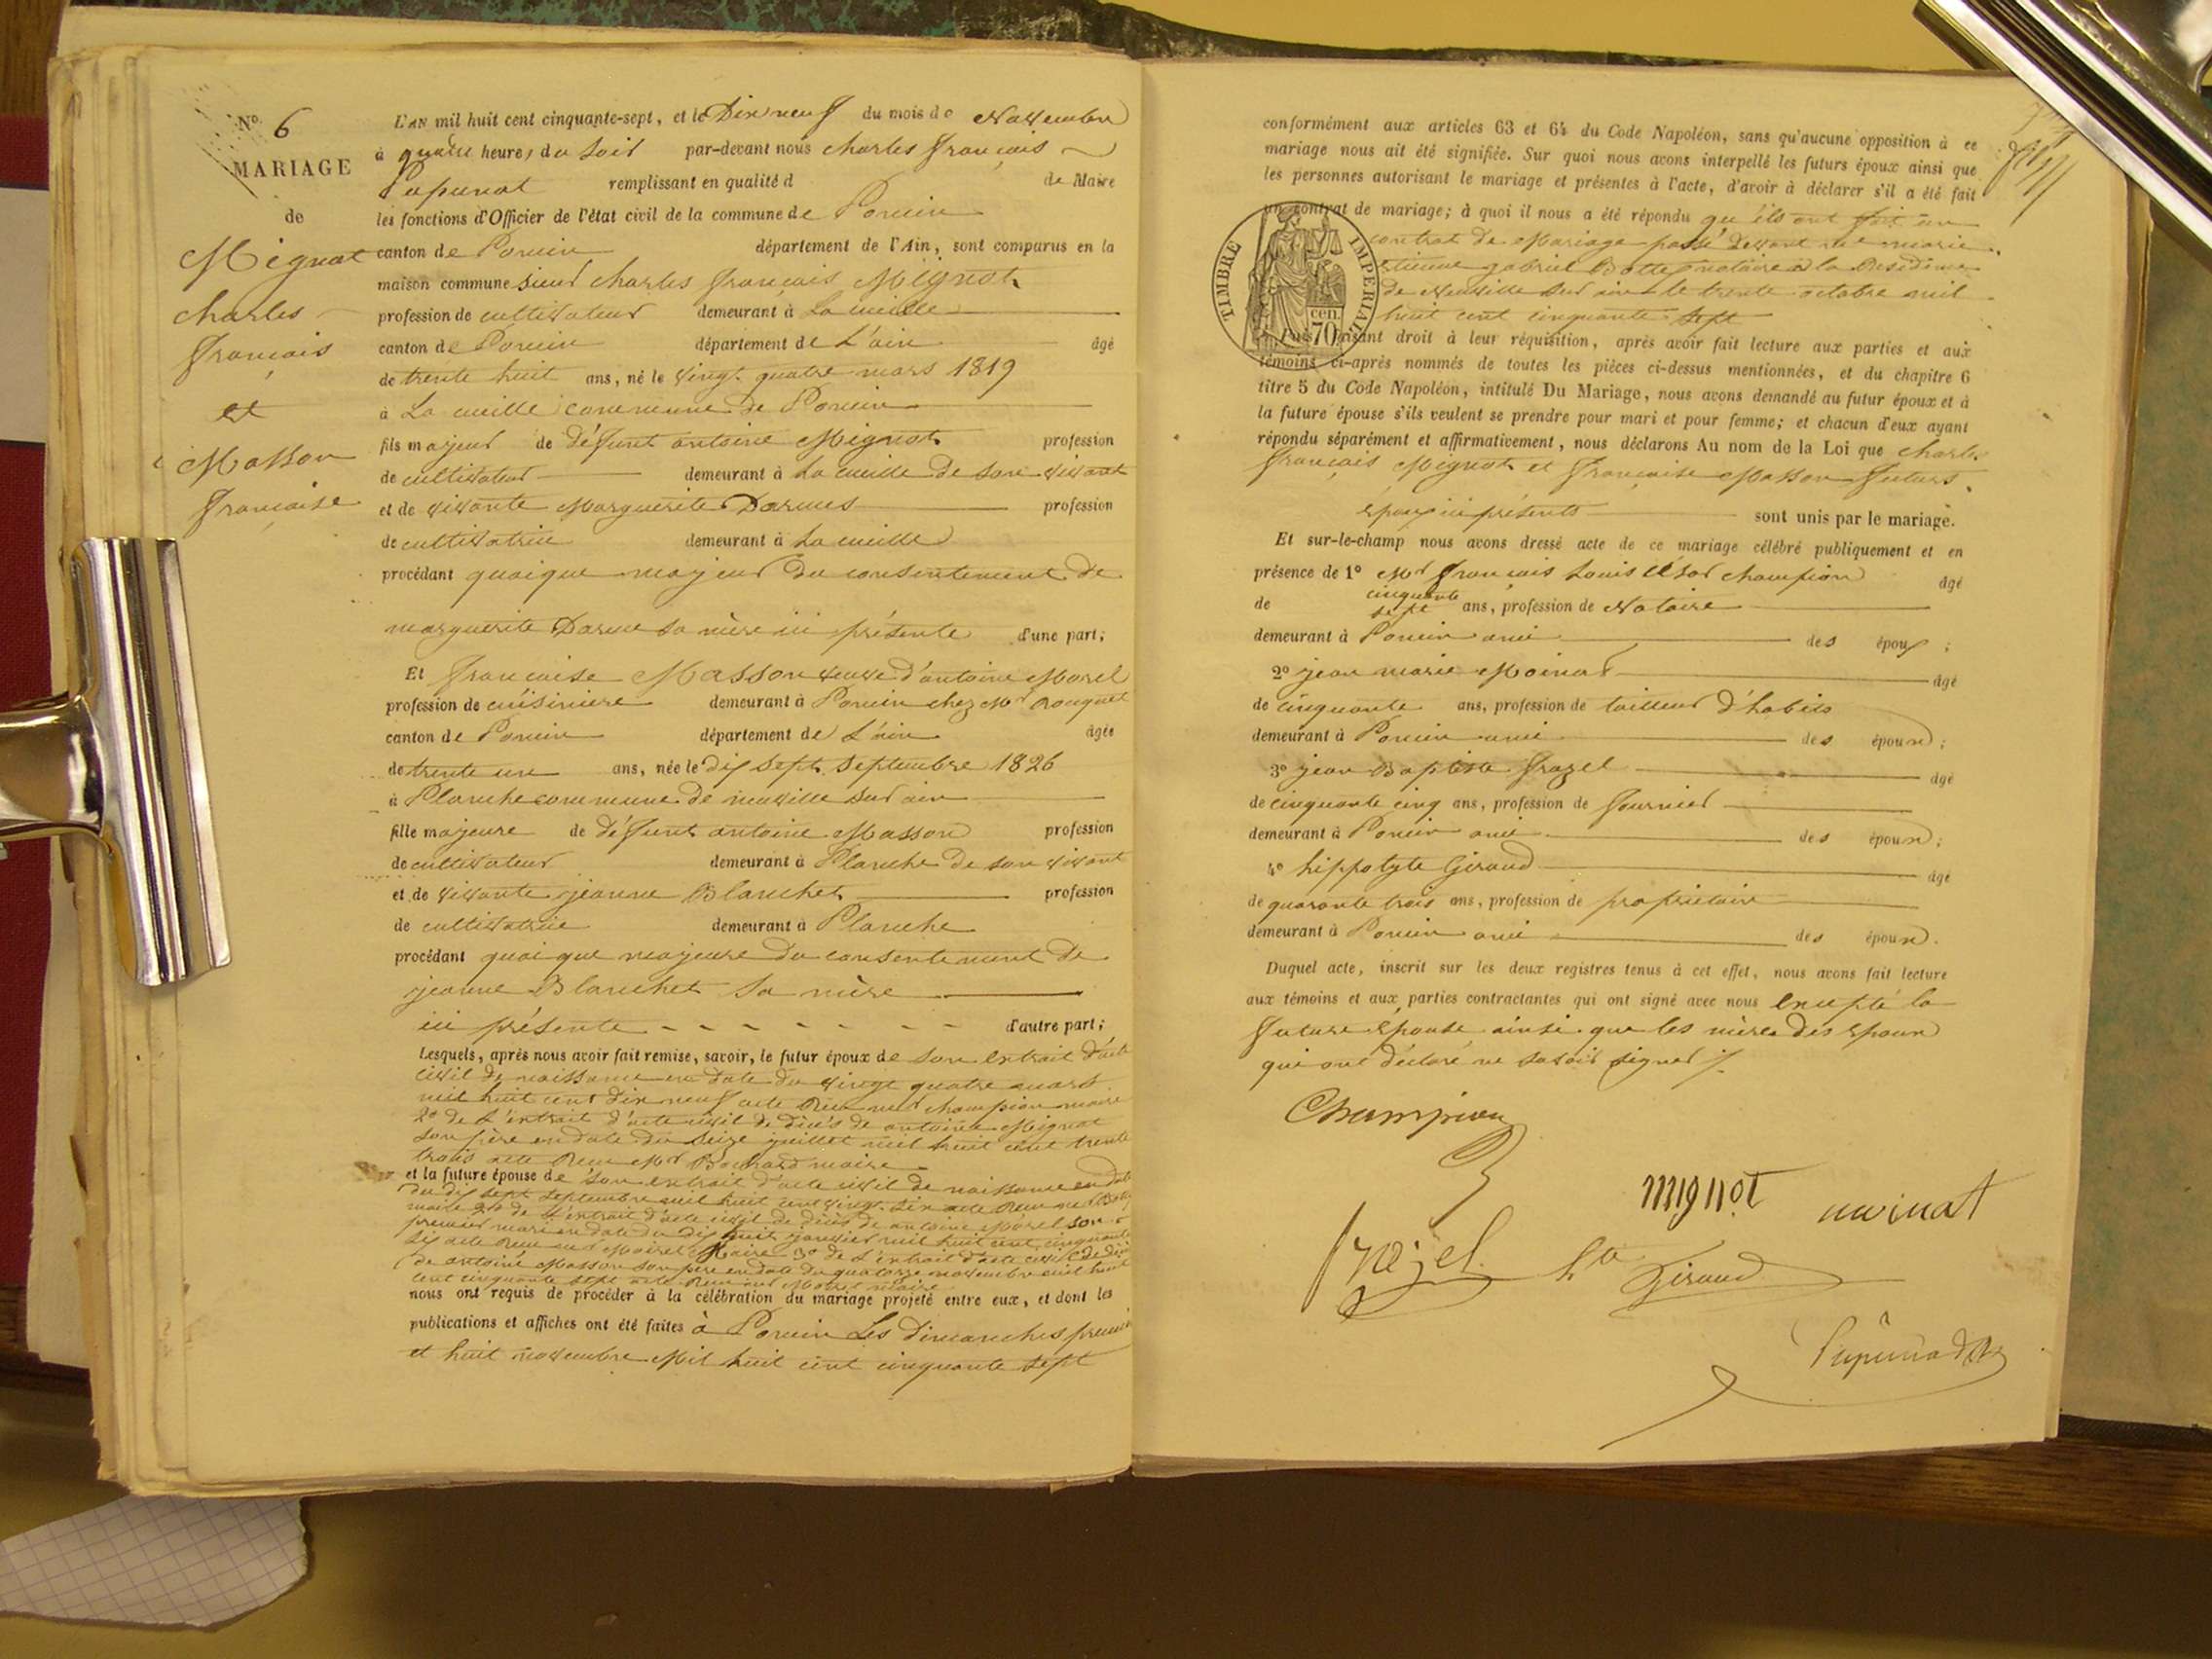 N° 6
MARIAGE
de
Mignot
Charles
François
et
Masson
Françoise
L'AN mil huit cent cinquante-sept, et le Dix neuf du mois de Novembre
à quatre heures du soir par-devant nous charles françois
remplissant en qualité d de Maire
les fonctions d'Officier de l'état civil de la commune de Poncin
canton de Poncin département de l'Ain, sont comparus en la
maison commune sieur charles françois Mignot
profession de cultivateur demeurant à La cueille
canton de Poncin département de L'ain âgé
de trente huit ans, né le vingt quatre mars 1819
à La cueille commune de Poncin
fils majeur de défunt antoine Mignot profession
de cultivateur demeurant à La cueille de son vivant
et de vivante Marguerite Darmes profession
de cultivatrice demeurant à La cueille
procédant quoique majeur du consentement de
marguerite Darme sa mère ici présente d'une part;
Et françoise Masson veuve d'antoine Morel
profession de cuisinière demeurant à Poncin chez Mr
canton de Poncin département de L'ain âgée
de trente un ans, née le dix sept Septembre 1826
à Planche commune de neuville sur ain
fille majeure de défunt antoine Masson profession
de cultivateur demeurant à Planche de son vivant
et de vivante jeanne Blanchet profession
de cultivatrice demeurant à Planche
procédant quoique majeure du consentement de
jeanne Blanchet sa mère
ici présente d'autre part;
Lesquels, après nous avoir fait remise, savoir, le futur époux de son extrait d'acte
civil de naissance en date du vingt quatre mars
mil huit cent dix neuf acte Reçu mr champion maire
2° de L'extrait d'acte civil de décès de antoine Mignot
son père en date du seize juillet mil huit cent trente
trois acte Reçu Mr maire
et la future épouse de son extrait d'acte civil de naissance en date
du dix sept septembre mil huit cent vingt six acte Reçu mr
maire 2° de L'extrait d'acte civil de décès de antoine Morel son
premier mari en date du dix huit janvier mil huit cent cinquante
six acte Reçu mr Maire 3° de L'extrait d'acte civil de décès
de antoine Masson son père en date du quatorze novembre mil huit
cent cinquante sept acte Reçu mr maire
nous ont requis de procéder à la célébration du mariage projeté entre eux, et dont les
publications et affiches ont été faites à Poncin Les dimanches premier
et huit novembre Mil huit cent cinquante sept
conformément aux articles 63 et 64 du Code Napoléon, sans qu'aucune opposition à ce
mariage nous ait été signifiée. Sur quoi nous avons interpellé les futurs époux ainsi que
les personnes autorisant le mariage et présentes à l'acte, d'avoir à déclarer s'il a été fait
un contrat de mariage; à quoi il nous a été répondu qu'ils ont fait un
contrat de Mariage passé devant me marie
étienne gabriel notaire à la Residence
de Neuville sur ain le trente octobre mil
huit cent cinquante sept
TIMBRE IMPÉRIAL
70 cen.
Puis, faisant droit à leur réquisition, après avoir fait lecture aux parties et aux
témoins ci-après nommés de toutes les pièces ci-dessus mentionnées, et du chapitre 6
titre 5 du Code Napoléon, intitulé Du Mariage, nous avons demandé au futur époux et à
la future épouse s'ils veulent se prendre pour mari et pour femme; et chacun d'eux ayant
répondu séparément et affirmativement, nous déclarons Au nom de la Loi que charles
françois Mignot et françoise Masson futurs
époux ici présents sont unis par le mariage.
Et sur-le-champ nous avons dressé acte de ce mariage célébré publiquement et en
présence de 1° Mr françois Louis césar champion âgé
de cinquante sept ans, profession de Notaire
demeurant à Poncin ami des époux;
2° jean marie Moinat âgé
de cinquante ans, profession de tailleur d'habits
demeurant à Poncin ami des époux;
3° jean Baptiste frazel âgé
de cinquante cinq ans, profession de fournier
demeurant à Poncin ami des époux;
4° hippolyte Giraud âgé
de quarante trois ans, profession de propriétaire
demeurant à Poncin ami des époux.
Duquel acte, inscrit sur les deux registres tenus à cet effet, nous avons fait lecture
aux témoins et aux parties contractantes qui ont signé avec nous Excepté la
future épouse ainsi que les mères des époux
qui ont déclaré ne savoir signer
Champion
mignot
moinat
frazel
hte Giraud